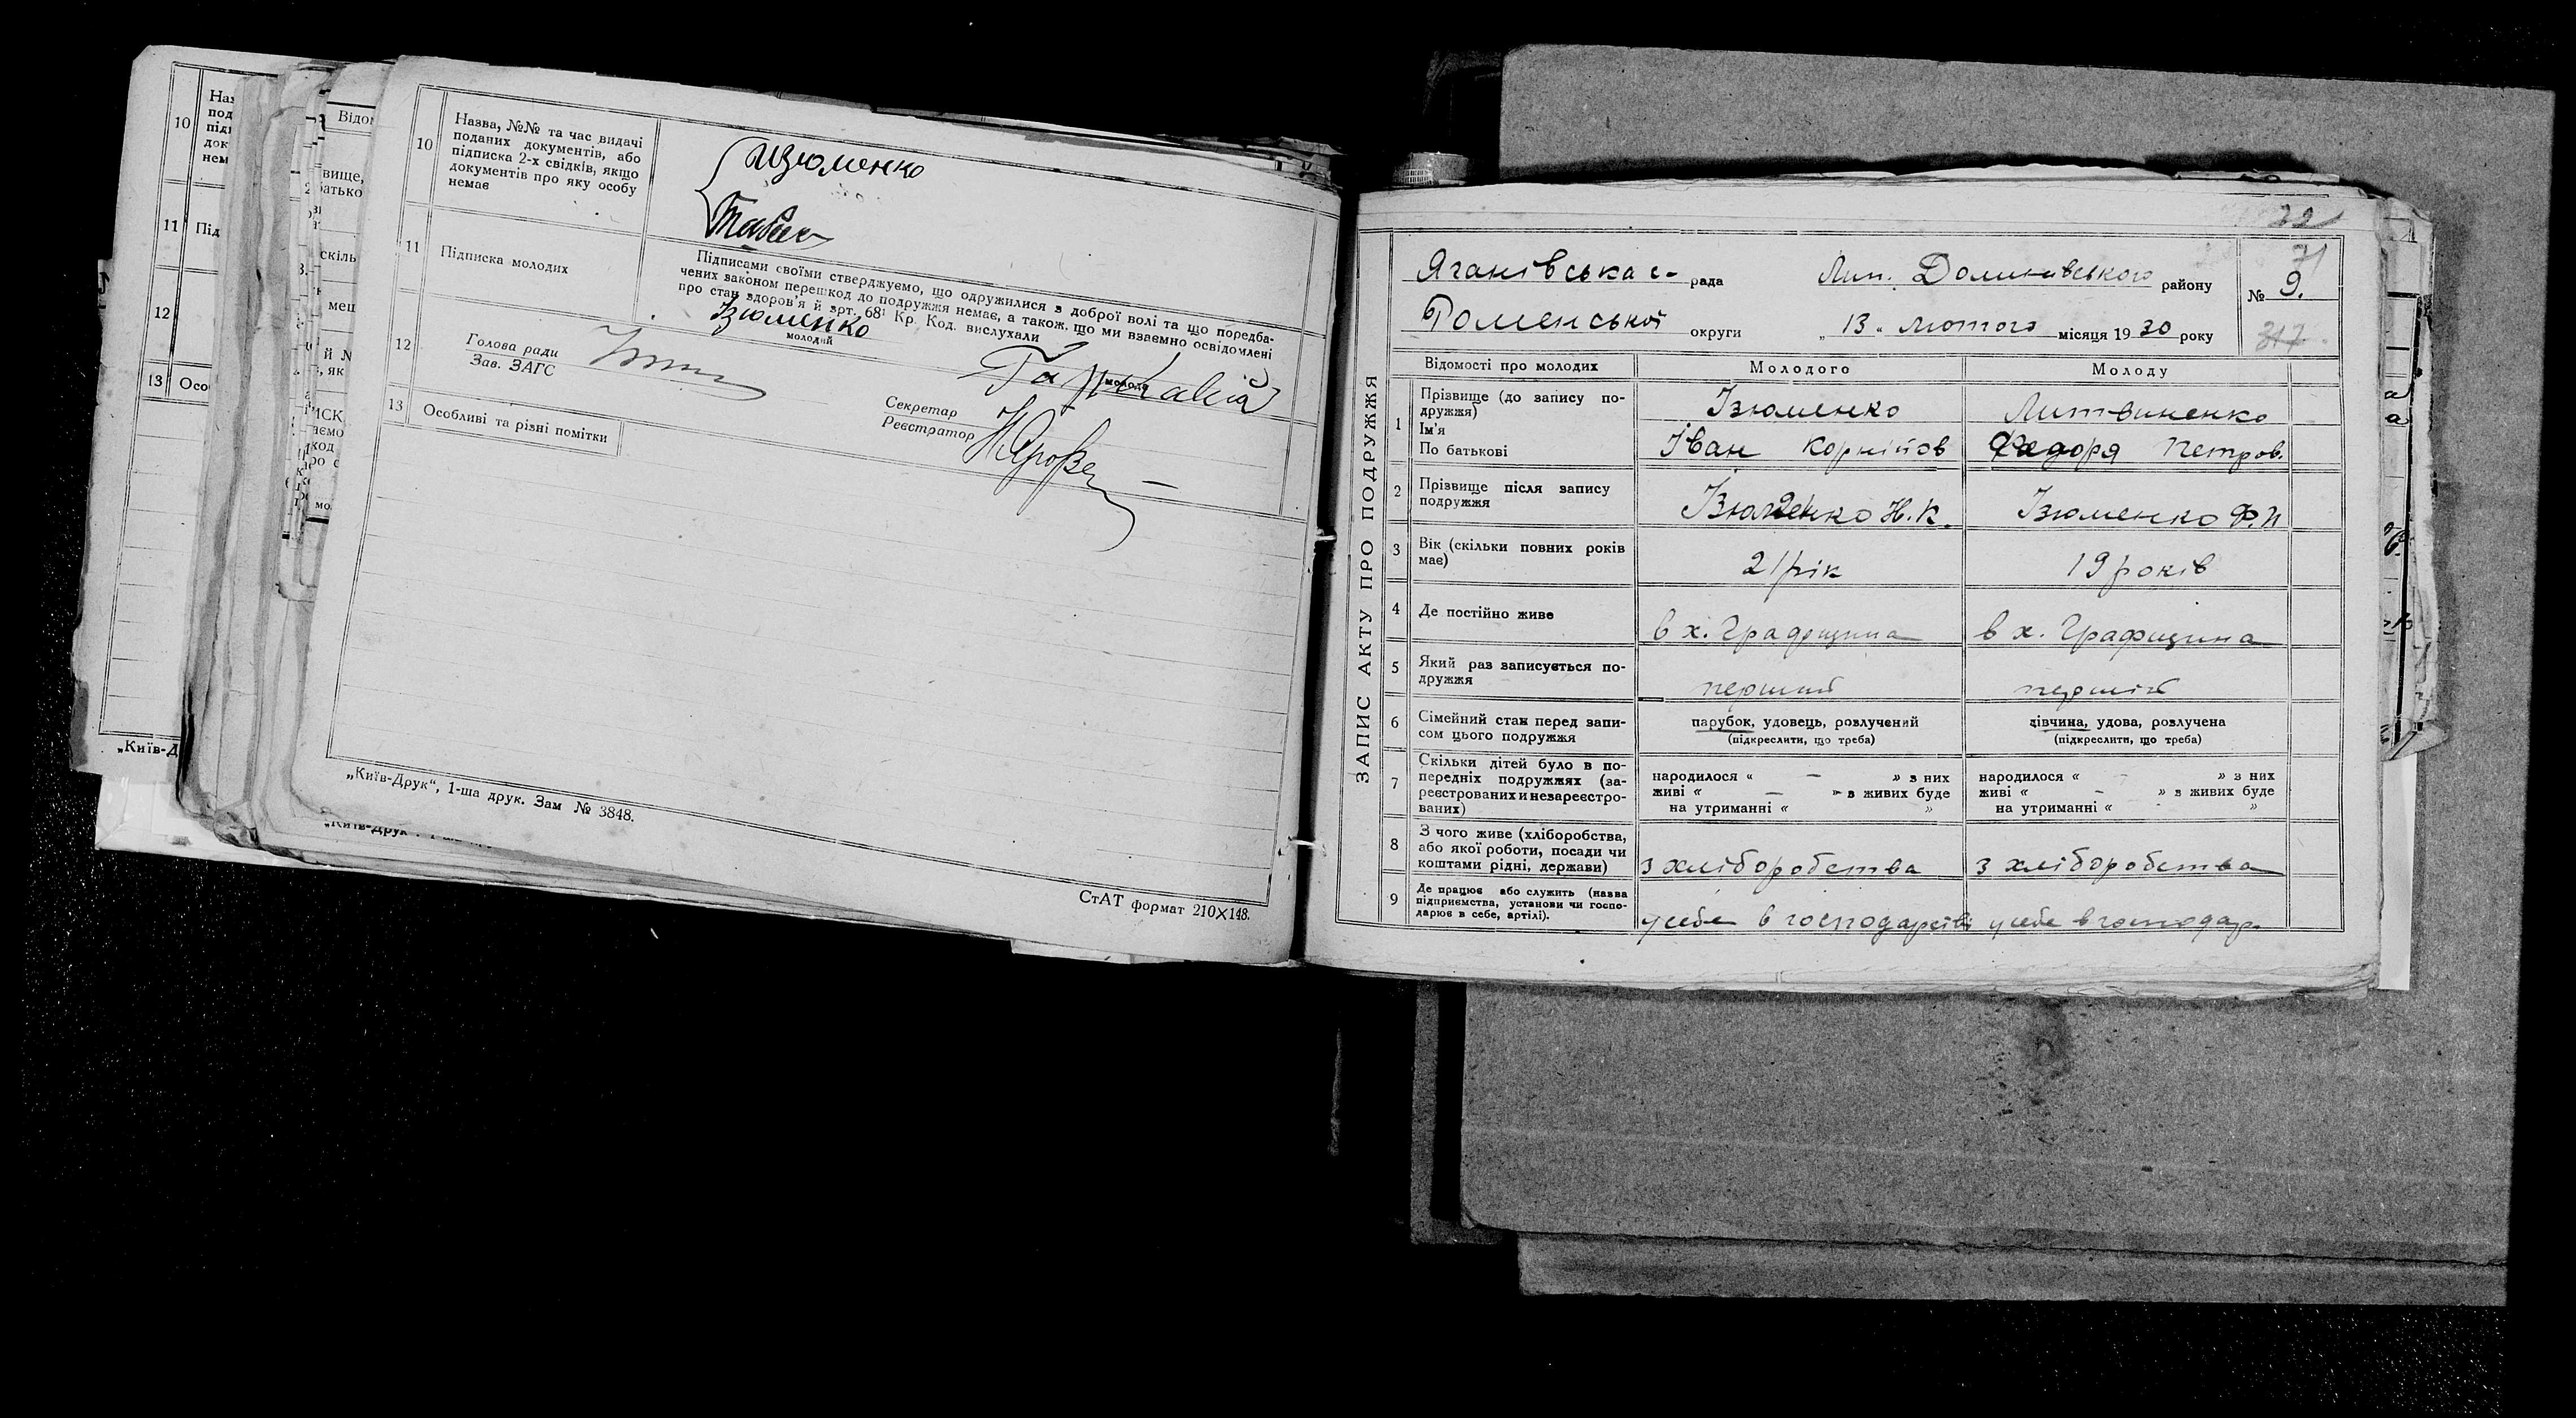 10
Назва, №№ та час видачі
поданих документів, або
підписка 2-х свідків, якщо
документів про яку особу
немає
Изюменко
11
Підписка молодих
Підписами своїми стверджуємо, що одружилися з доброї волі та що передба-
чених законом перешкод до подружжя немає, а також, що ми взаємно освідомлені
про стан здоров'я й арт. 68¹ Кр. Код. вислухали
Ізюменко
молодий
молода
12
Голова ради
Зав. ЗАГС
Секретар
Реєстратор
13
Особливі та різні помітки
„Київ-Друк“, 1-ша друк. Зам № 3848.
СтАТ формат 210×148.
10
11 Під
12
13 Осо
„Київ-Д
ЗАПИС АКТУ ПРО ПОДРУЖЖЯ
32
31
Ягановська с- рада Лип. Долинівського району № 9.
Роменської округи „13“ лютого місяця 1930 року 317
Відомості про молодих Молодого Молоду
1 Прізвище (до запису по-
дружжя) Ізюменко Литвиненко
Ім'я
По батькові Іван Корніїов Федоря Петров.
2 Прізвище після запису
подружжя Ізюменко И.К. Ізюменко Ф.П
3 Вік (скільки повних років
має) 21 рік 19 років
4 Де постійно живе в х. Графщина в х. Графщина
5 Який раз записується по-
дружжя перший перший
6 Сімейний стан перед запи-
сом цього подружжя
парубок, удовець, розлучений
(підкреслити, що треба)
дівчина, удова, розлучена
(підкреслити, що треба)
7 Скільки дітей було в по-
передніх подружжях (за-
реєстрованих и незареєстро-
ваних)
народилося « — » з них
живі « — » з живих буде
на утриманні « »
народилося « - » з них
живі « - » з живих буде
на утриманні « »
8 З чого живе (хліборобства,
або якої роботи, посади чи
коштами рідні, держави) з хліборобства з хліборобства
9 Де працює або служить (назва
підприємства, установи чи госпо-
дарює в себе, артілі).
у себе в господарстві у себе в господар.